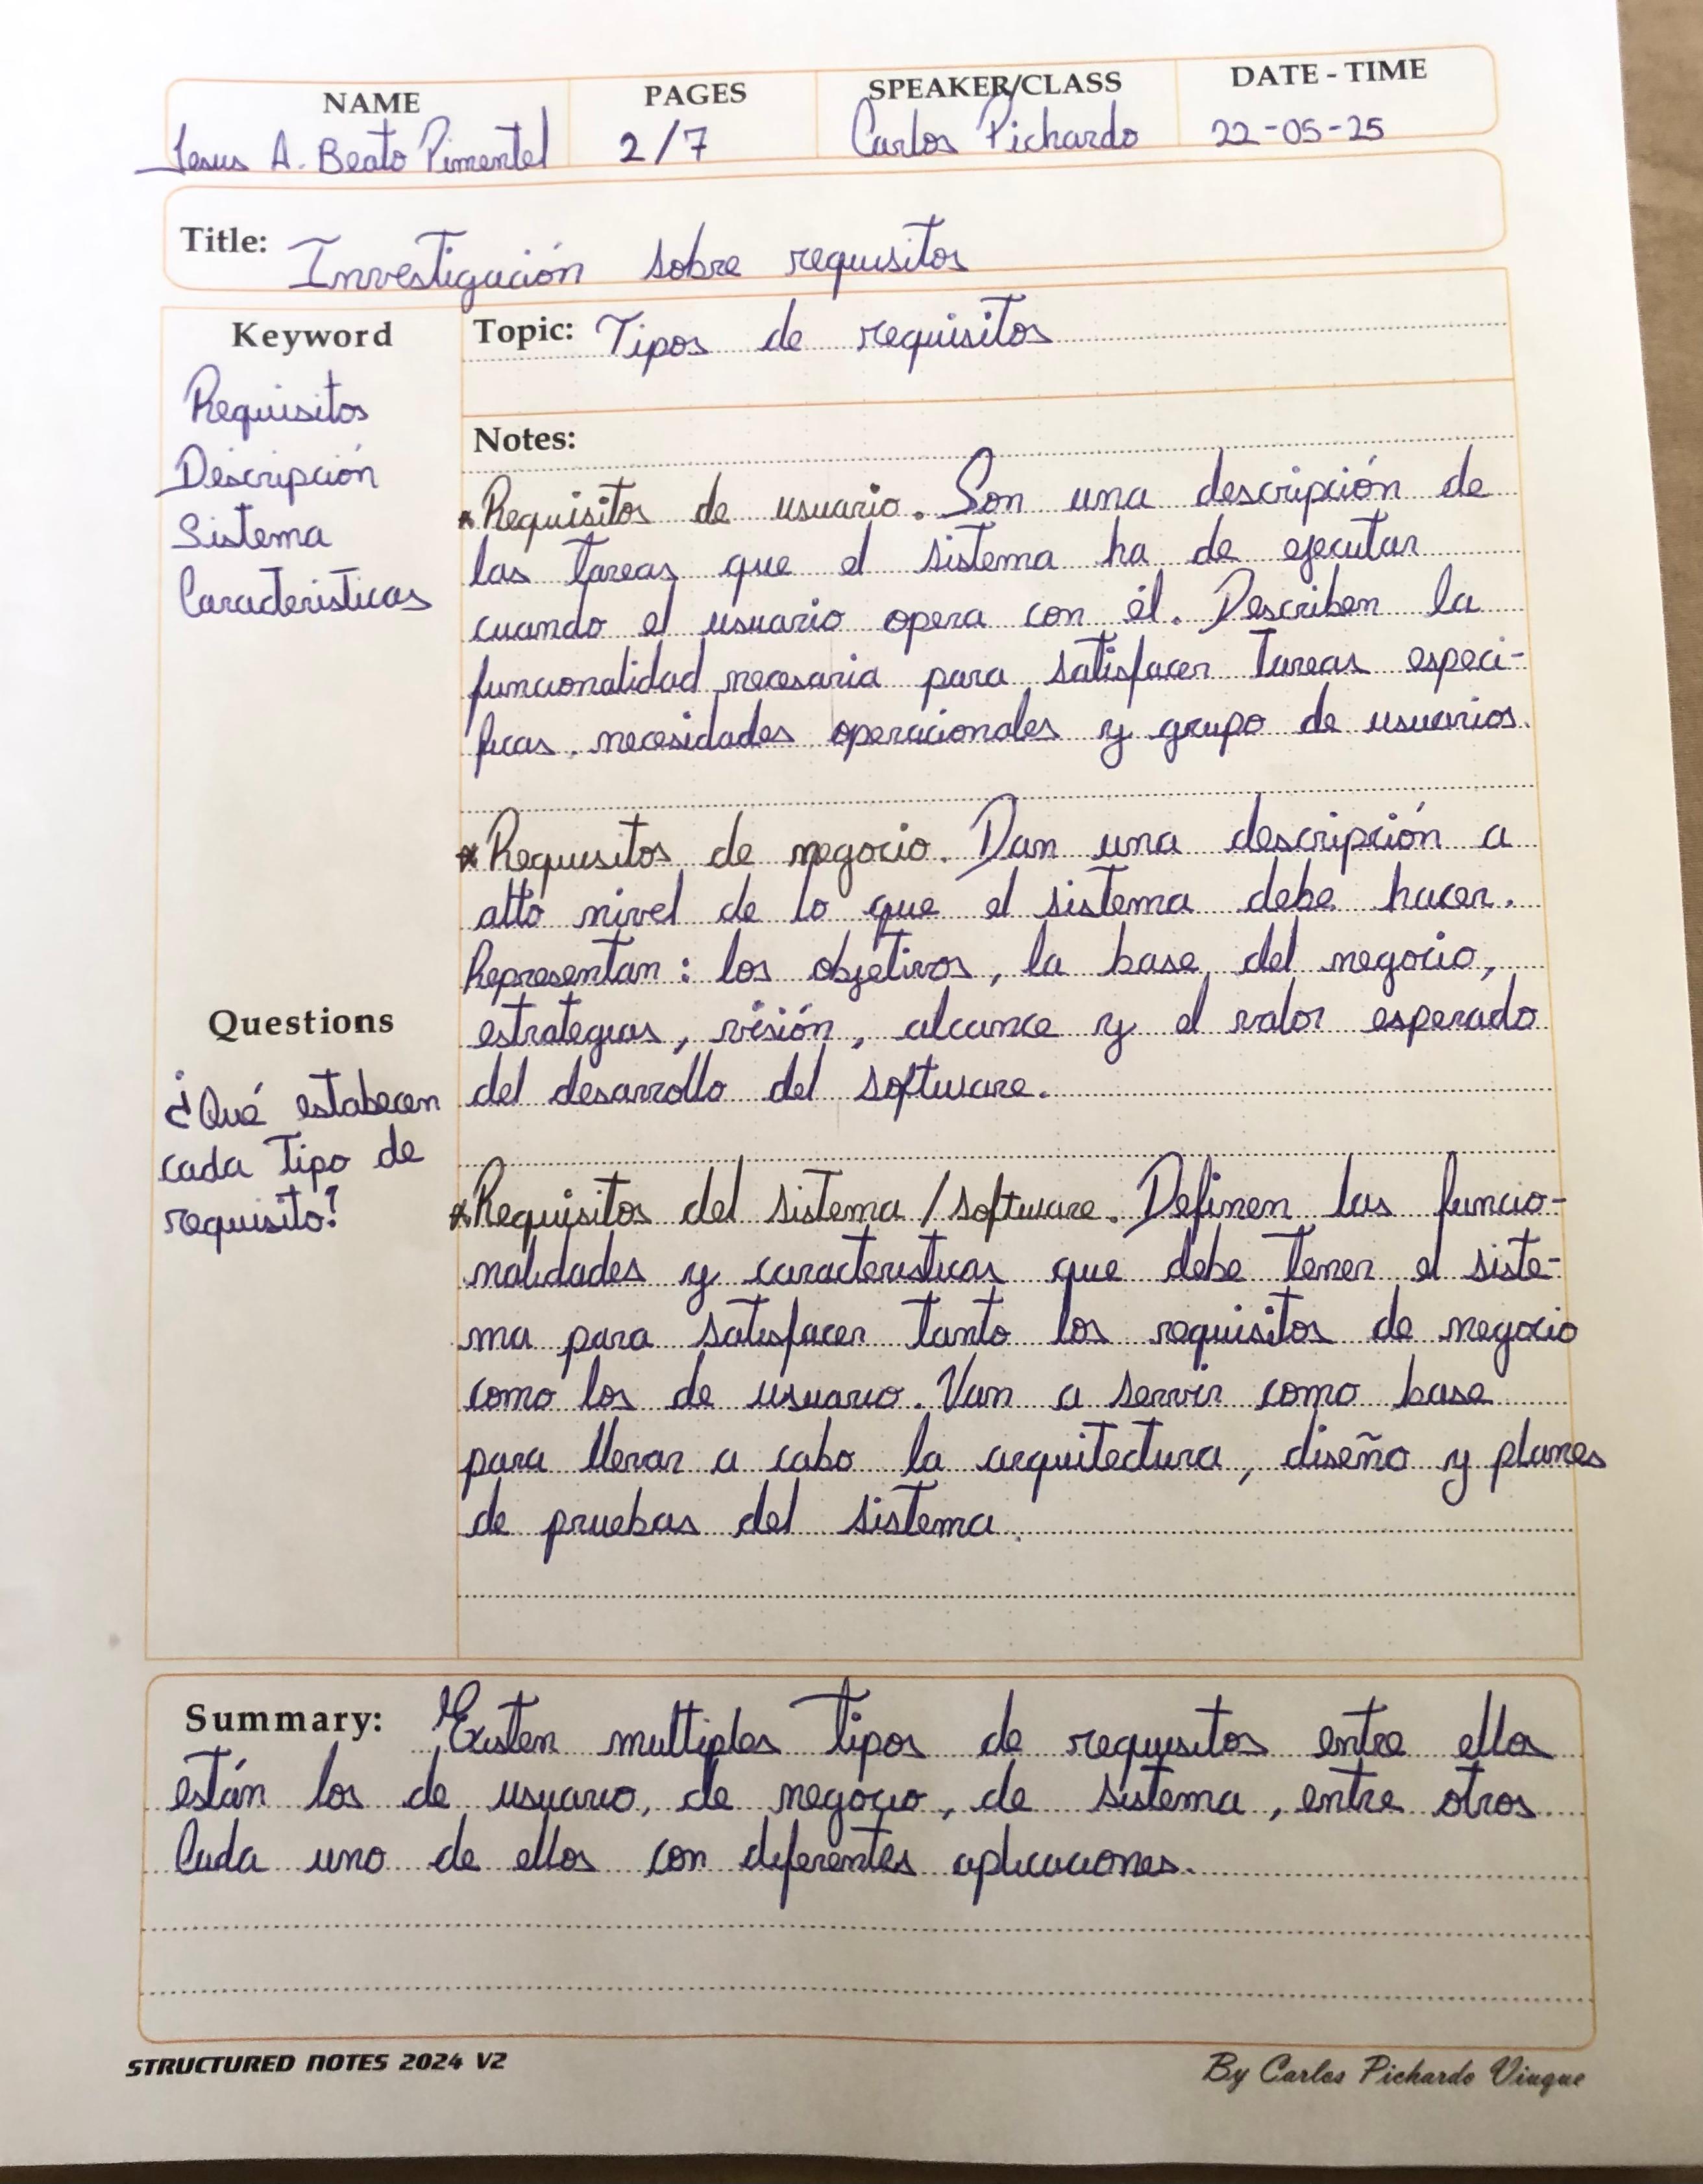 NAME PAGES SPEAKER/CLASS DATE - TIME
Jesus A. Beato Pimentel 2/7 Carlos Pichardo 22-05-25
Title: Investigación sobre requisitos
Keyword
Requisitos
Descripción
Sistema
Caracteristicas
Questions
¿Qué estabecen
cada tipo de
requisito?
Topic: Tipos de requisitos
Notes:
* Requisitos de usuario. Son una descripción de
las tareas que el sistema ha de ejecutar
cuando el usuario opera con él. Describen la
funcionalidad necesaria para satisfacer tareas especi-
ficas. necesidades operacionales y grupo de usuarios.
* Requisitos de negocio. Dan una descripción a
alto nivel de lo que el sistema debe hacer.
Representan: los objetivos, la base del negocio,
estrategias, visión, alcance y el valor esperado
del desarrollo del software.
* Requisitos del sistema / software. Definen las funcio-
nalidades y caracteristicas que debe tener el siste-
ma para satisfacer tanto los requisitos de negocio
como los de usuario. Van a servir como base
para llevar a cabo la arquitectura, diseño y planes
de pruebas del sistema.
Summary: Existen multiples tipos de requisitos entre ellos
están los de usuario, de negocio, de sistema, entre otros.
Cada uno de ellos con diferentes aplicaciones.
STRUCTURED NOTES 2024 V2
By Carlos Pichardo Viuque